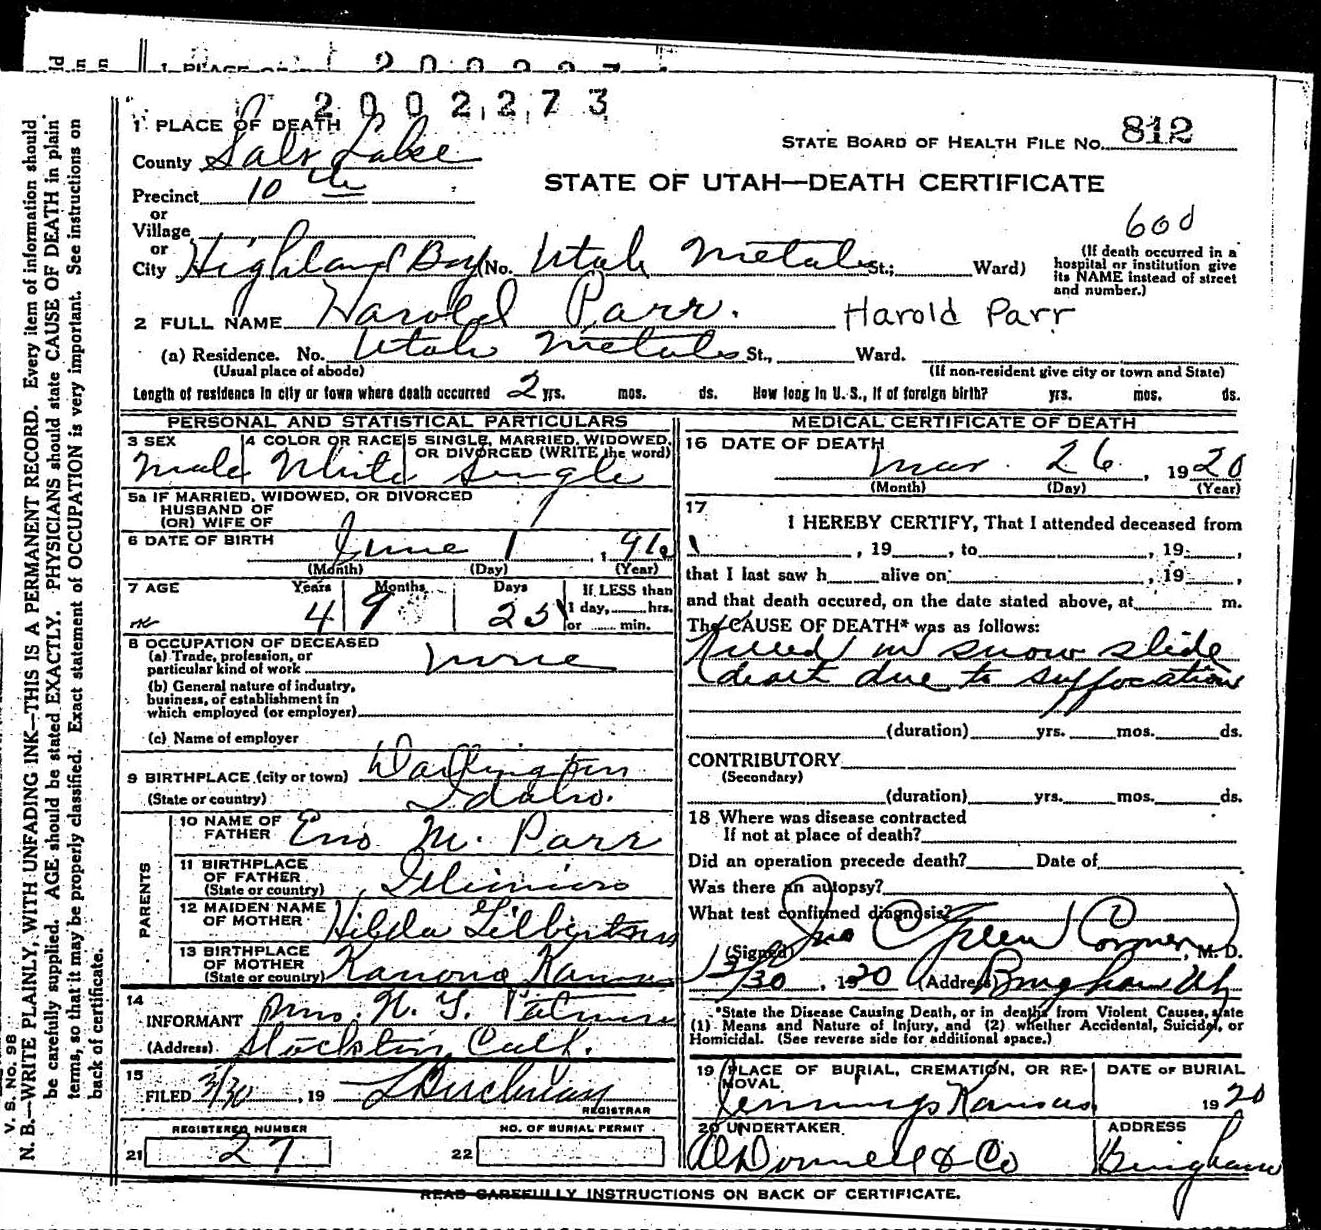 1 PLACE OF DEATH
2 0 0 2 2 7 3
STATE BOARD OF HEALTH FILE NO. 812
County Salt Lake
STATE OF UTAH—DEATH CERTIFICATE
Precinct 10th
or
Village
or
City Highland Boy (No. Utah Metals St.; Ward)
600
(If death occurred in a
hospital or institution give
its NAME instead of street
and number.)
2 FULL NAME Harold Parr. Harold Parr
(a) Residence. No. Utah Metals St., Ward.
(Usual place of abode)
(If non-resident give city or town and State)
Length of residence in city or town where death occurred 2 yrs. mos. ds. How long in U. S., if of foreign birth? yrs. mos. ds.
PERSONAL AND STATISTICAL PARTICULARS
3 SEX
Male
4 COLOR OR RACE
White
5 SINGLE, MARRIED, WIDOWED,
OR DIVORCED (WRITE the word)
Single
5a IF MARRIED, WIDOWED, OR DIVORCED
HUSBAND OF
(OR) WIFE OF
6 DATE OF BIRTH
June 1
(Month) (Day) (Year)
7 AGE
Years Months Days If LESS than
4 9 25 1 day, hrs.
or min.
8 OCCUPATION OF DECEASED
(a) Trade, profession, or
particular kind of work none
(b) General nature of industry,
business, or establishment in
which employed (or employer)
(c) Name of employer
9 BIRTHPLACE (city or town) Darlington
(State or country) Idaho.
PARENTS
10 NAME OF
FATHER M. Parr
11 BIRTHPLACE
OF FATHER
(State or country) Illinois
12 MAIDEN NAME
OF MOTHER Hilda Gilbertson
13 BIRTHPLACE
OF MOTHER
(State or country) Kanona Kansas
14
INFORMANT Mrs.
(Address) Stockton, Calf.
15
FILED 3/30, 19
REGISTRAR
REGISTERED NUMBER
21 27
NO. OF BURIAL PERMIT
22
MEDICAL CERTIFICATE OF DEATH
16 DATE OF DEATH
Mar. 26, 1920
(Month) (Day) (Year)
17
I HEREBY CERTIFY, That I attended deceased from
, 19 , to , 19 ,
that I last saw h alive on , 19 ,
and that death occured, on the date stated above, at m.
The CAUSE OF DEATH* was as follows:
Killed in snow slide
deart due to suffocation
(duration) yrs. mos. ds.
CONTRIBUTORY
(Secondary)
(duration) yrs. mos. ds.
18 Where was disease contracted
If not at place of death?
Did an operation precede death? Date of
Was there an autopsy?
What test confirmed diagnosis?
(Signed) Jno C Green (Coroner), M. D.
3/30, 1920 (Address) Bingham Ut
*State the Disease Causing Death, or in deaths from Violent Causes, state
(1) Means and Nature of Injury, and (2) whether Accidental, Suicidal, or
Homicidal. (See reverse side for additional space.)
19 PLACE OF BURIAL, CREMATION, OR RE-
MOVAL
Jennings Kansas
DATE OF BURIAL
1920
20 UNDERTAKER
O'Donnell & Co
ADDRESS
Bingham
READ CAREFULLY INSTRUCTIONS ON BACK OF CERTIFICATE.
V. S. NO. 98
N. B.—WRITE PLAINLY, WITH UNFADING INK—THIS IS A PERMANENT RECORD. Every item of information should
be carefully supplied. AGE should be stated EXACTLY. PHYSICIANS should state CAUSE OF DEATH in plain
terms, so that it may be properly classified. Exact statement of OCCUPATION is very important. See instructions on
back of certificate.